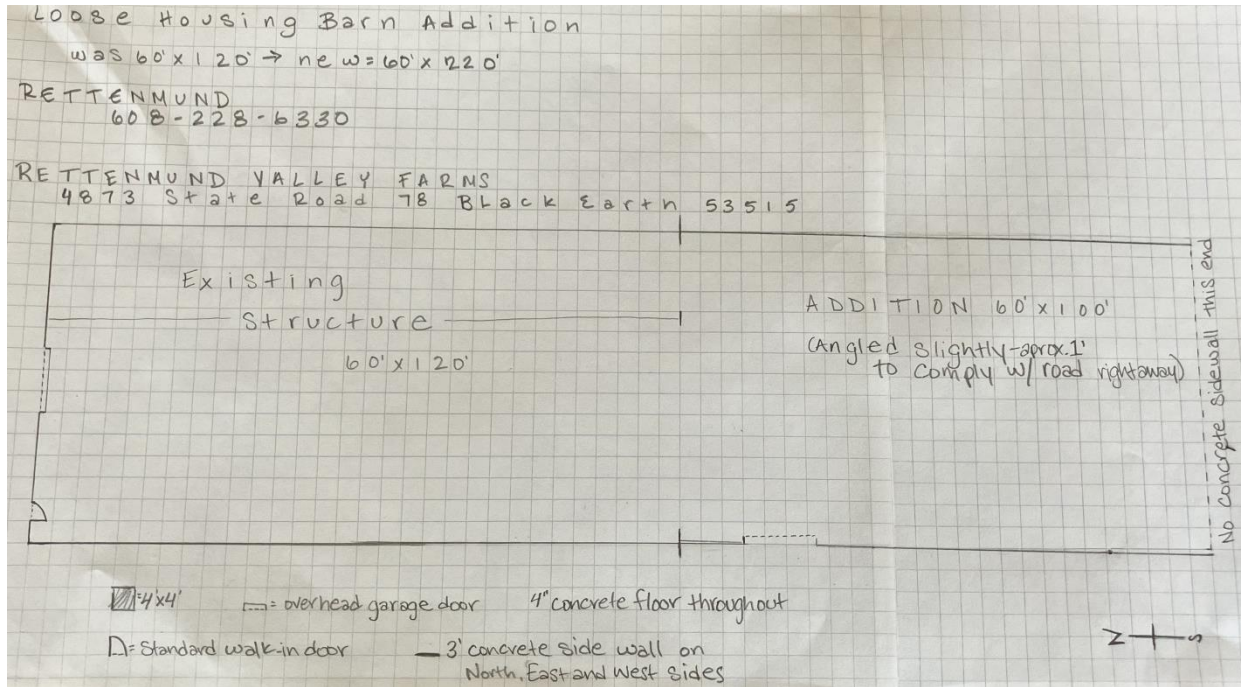 Loose Housing Barn Addition
was 60'x120' → new=60'x220'
RETTENMUND
608-228-6330
RETTENMUND VALLEY FARMS
4873 State Road 78 Black Earth 53515
Existing
Structure
60'x120'
ADDITION 60'x100'
(Angled slightly-aprox.1'
to comply w/ road rightaway)
No concrete sidewall this end
=4'x4'
= overhead garage door
4" concrete floor throughout
D= Standard walk-in door
— 3' concrete side wall on
North, East and West sides
N
S